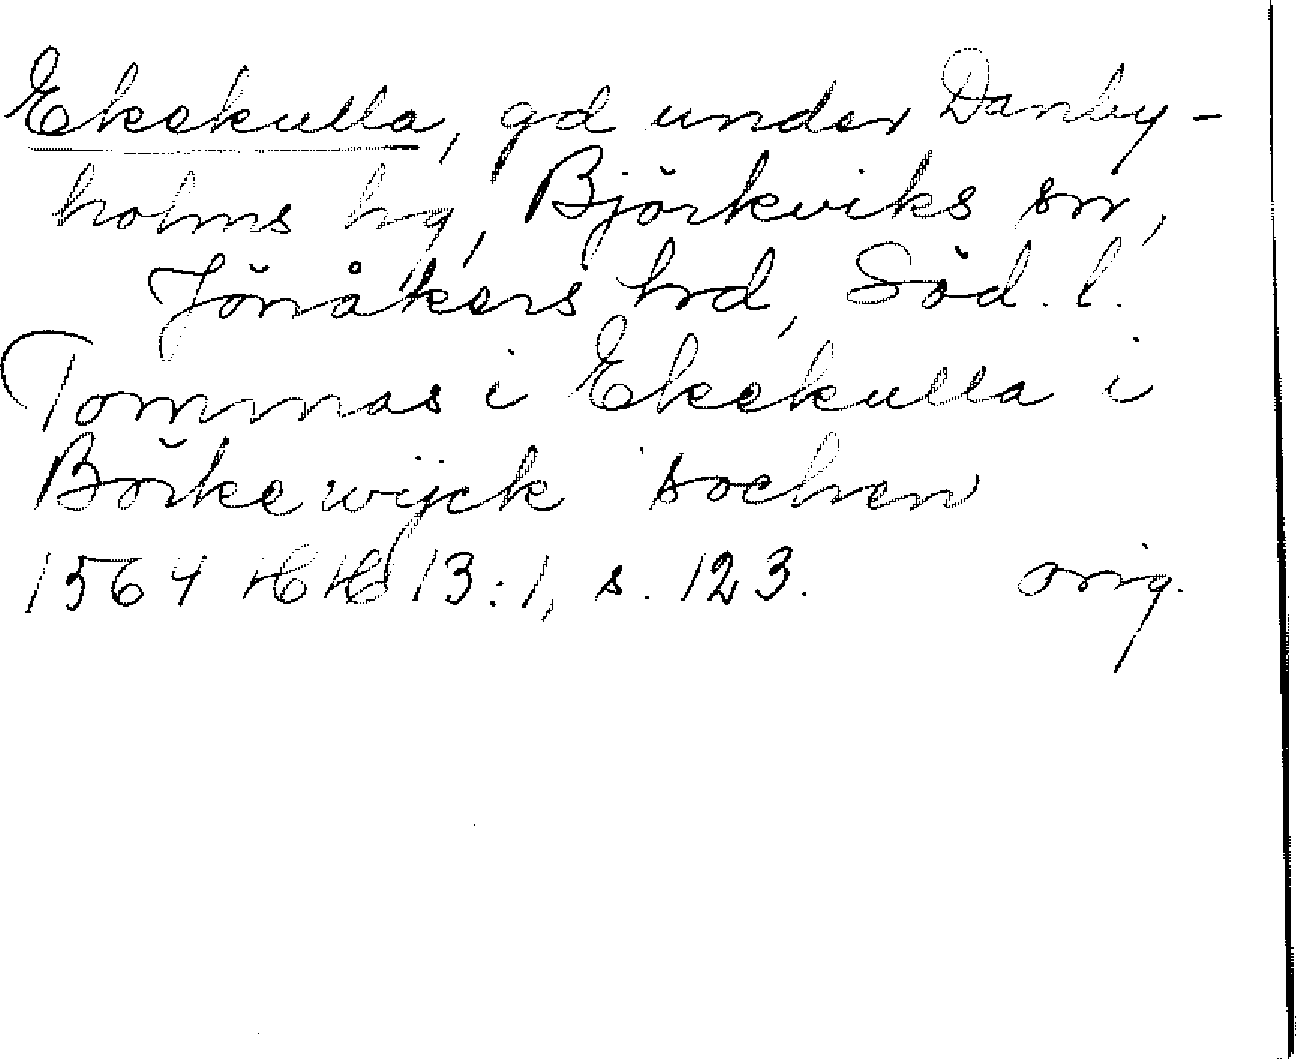 Ekekulla, gd under Danby-
holms hg, Björkviks sn,
Jönåkers hd, Söd. l.
Tommas i Ekekulla i
Börkewijck sochen
1564 HH 13:1, s. 123. orig.